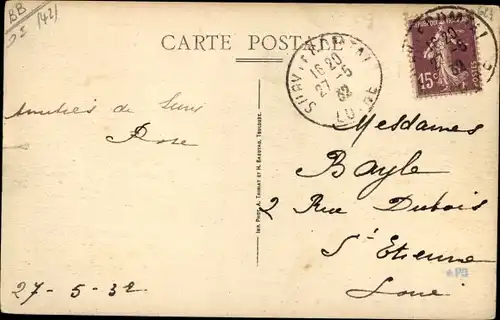 BB
(42)
CARTE POSTALE
SURY-LE-COMTAL
16 20
27-5
32
LOIRE
15c
POSTES
Amitiés de
Rose
Mesdames
Bayle
2 Rue Dubois
St Etienne
Loire
27-5-32
IMP. PHOT. A. THIRIAT ET H. BASUYAU, TOULOUSE.
PB